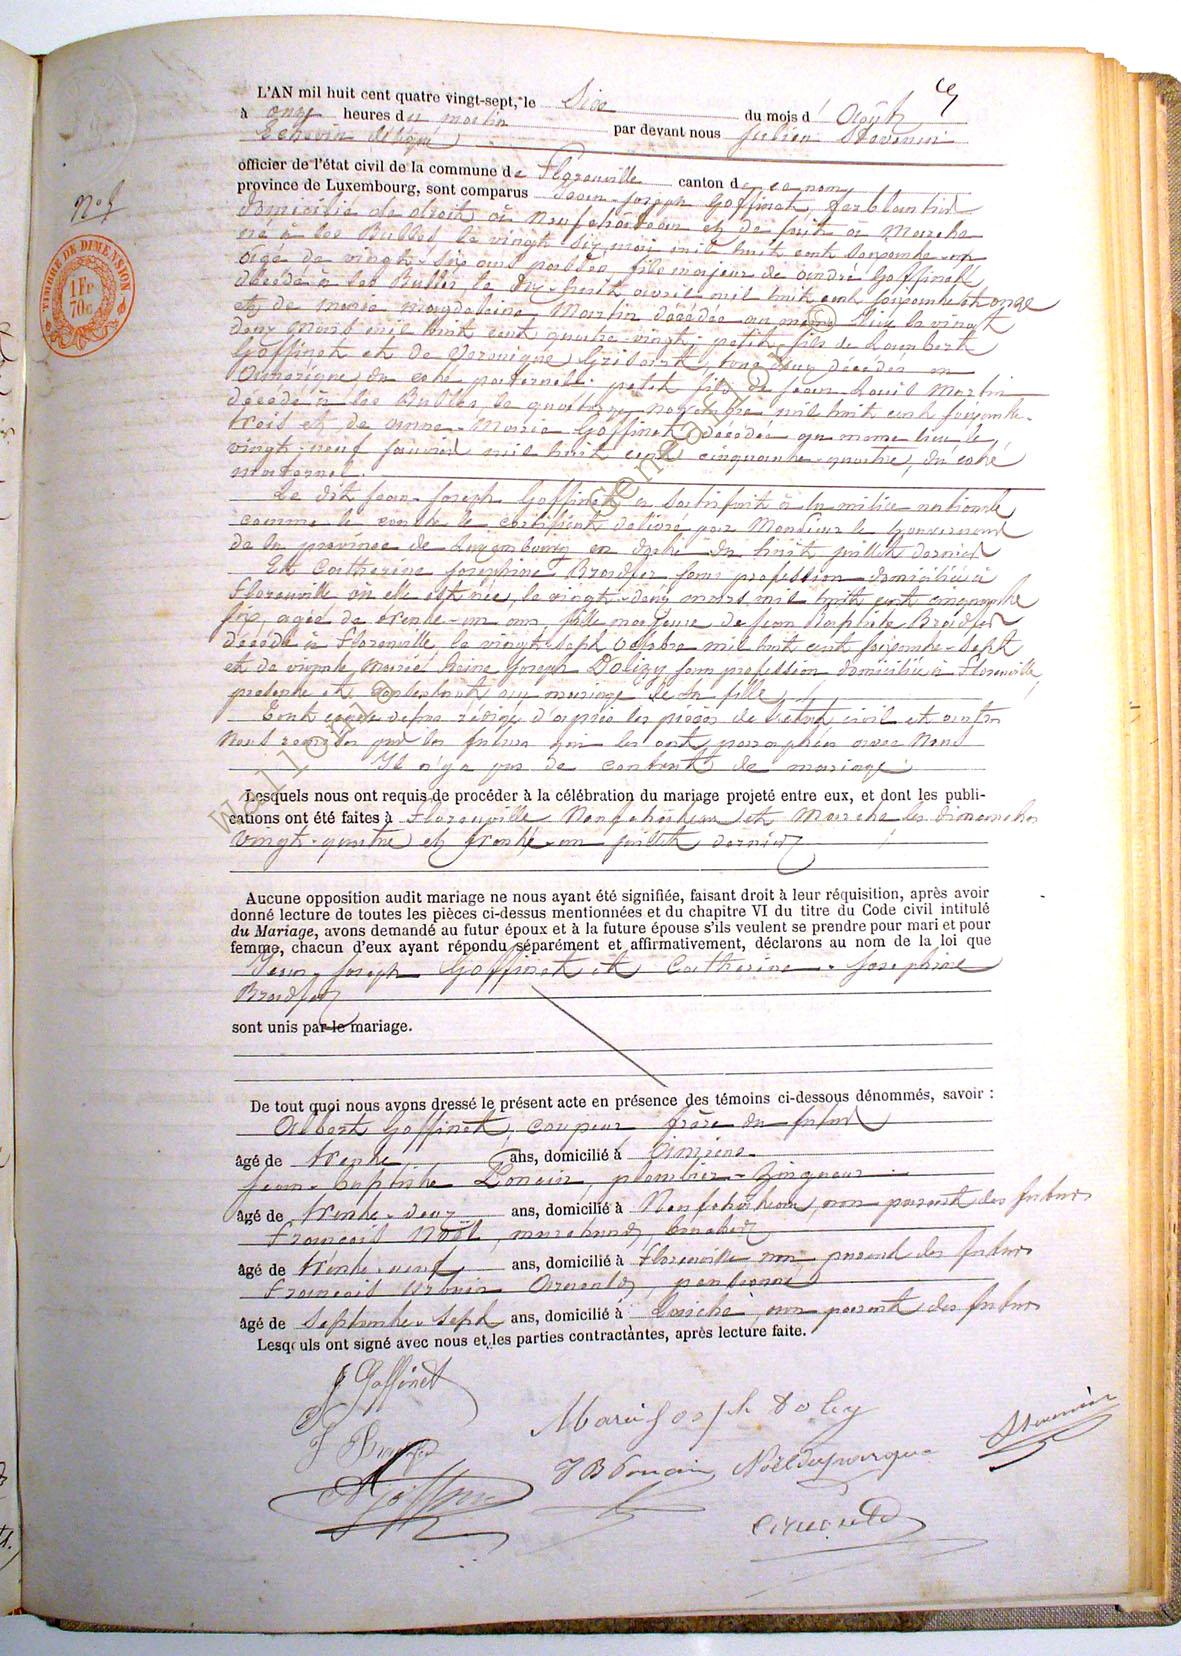 9
L'AN mil huit cent quatre vingt-sept, le Six du mois d'Août
à onze heures du matin par devant nous Julien
Echevin délégué
officier de l'état civil de la commune de Florenville canton de ce nom
province de Luxembourg, sont comparus Jean-Joseph Goffinet ferblantier
N° 9
TIMBRE DE DIMENSION
1 Fr
70c
domicilié de droit à Neufchâteau et de fait à Marche
né à les Bulles, le vingt six mai mil huit cent soixante-un
âgé de vingt-six ans passés, fils majeur de André Goffinet
décédé à les Bulles le dix-huit avril mil huit cent soixante et onze
et de Marie Magdelaine Martin décédée au même lieu le vingt
deux mars mil huit cent quatre-vingt; petit-fils de Lambert
Goffinet et de Véronique Grisart tous deux décédés en
Amérique, du coté paternel; petit fils de Jean-Louis Martin
décédé à les Bulles, le quatorze novembre mil huit cent soixante-
trois et de Anne-Marie Goffinet décédée au même lieu le
vingt-neuf janvier mil huit cent cinquante-quatre, du coté
maternel.
Le dit Jean-Joseph Goffinet a satisfait à la milice nationale
comme le constate le certificat délivré par Monsieur le Gouverneur
de la province de Luxembourg en date du huit juillet dernier
Et Catherine Joséphine Bradfer sans profession domiciliée à
Florenville où elle est née, le vingt-deux mars mil huit cent cinquante
six, agée de trente-un ans, fille majeure de Jean Baptiste Bradfer
décédé à Florenville, le vingt-sept octobre mil huit cent soixante-sept
et de vivante Marie Reine Joseph Dolizy sans profession domiciliée à Florenville,
présente et consentant au mariage de sa fille
Tout ce que dessus rédigé d'après les pièces de l'état civil et autres
Nous remises par les futurs qui les ont paraphées avec Nous
Il n'y a pas de contrat de mariage.
Lesquels nous ont requis de procéder à la célébration du mariage projeté entre eux, et dont les publi-
cations ont été faites à Florenville Neufchâteau et Marche les dimanches
vingt-quatre et trente-un juillet dernier
Aucune opposition audit mariage ne nous ayant été signifiée, faisant droit à leur réquisition, après avoir
donné lecture de toutes les pièces ci-dessus mentionnées et du chapitre VI du titre du Code civil intitulé
du Mariage, avons demandé au futur époux et à la future épouse s'ils veulent se prendre pour mari et pour
femme, chacun d'eux ayant répondu séparément et affirmativement, déclarons au nom de la loi que
Jean-Joseph Goffinet et Catherine-Joséphine
Bradfer
sont unis par le mariage.
De tout quoi nous avons dressé le présent acte en présence des témoins ci-dessous dénommés, savoir :
Albert Goffinet, coupeur frère du futur
âgé de trente ans, domicilié à
Jean-Baptiste Ponain, plombier-Zingueur
âgé de trente-deux ans, domicilié à Neufchâteau, non parent des futurs
François Noël, marchand,
âgé de trente-neuf ans, domicilié à Florenville non parent des futurs
François Urbain Arnould, pensionné
âgé de septante-sept ans, domicilié à Laiche, non parent des futurs
Lesquels ont signé avec nous et les parties contractantes, après lecture faite.
J Goffinet
Marie Joseph Dolizy
J Bradfer
Goffinet
J B Ponain
Arnould
wallonia © Geneanet